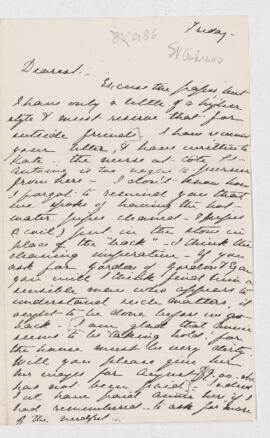 Friday -
St Andrews
Dearest :-
Excuse the paper but
I have only a little of a higher
style & must reserve that for
outside friends. I have received
your letter, & have written to
Kate - the nurse at Cote St-
Antoine is too
from here - I don't know how
I forgot to remind you that
we spoke of having the hot
water pipes cleaned - & pipes
(a coil) put in the stove in
place of the "back" - I think the
cleaning imperative - if you
ask for Gordon at Gordon &
you will I think find him a
sensible man who appears to
understand such matters. it
ought to be done before we go
back - I am glad that Annie
seems to be taking hold, for
the house must be very dirty.
Will you please give her
her wages for August $9.00. she
has not been paid - indeed
I'd have paid Annie here, if I
had remembered to ask for more
of the needful -